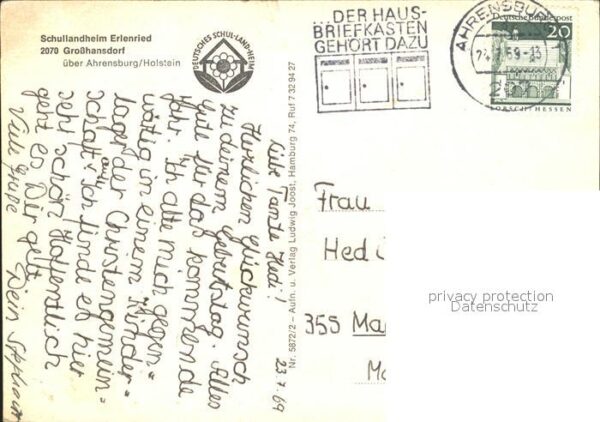 Schullandheim Erlenried
2070 Großhansdorf
über Ahrensburg/Holstein
DEUTSCHES SCHUL-LAND-HEIM
...DER HAUS-
BRIEFKASTEN
GEHÖRT DAZU
AHRENSBURG
Deutsche Bundespost
20
LORSCH / HESSEN
23.7.69
Liebe Tante Hedi!
Herzlichen Glückwunsch
zu deinem Geburtstag. Alles
Gute für das kommende
Jahr. Ich halte mich gegen=
wärtig in einem Kinder=
lager der Christengemein=
schaft auf. Ich finde es hier
sehr schön. Hoffentlich
geht es Dir gut.
Viele Grüße
Dein Stephan
Nr. 5872/2 – Aufn. u. Verlag Ludwig Joost, Hamburg 74, Ruf 7 32 94 27
Frau
Hedi
355 Ma
privacy protection
Datenschutz